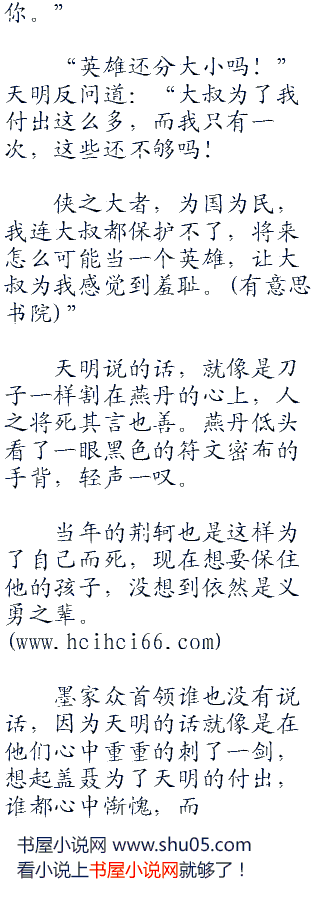 你。”
“英雄还分大小吗！”
天明反问道：“大叔为了我
付出这么多，而我只有一
次，这些还不够吗！
侠之大者，为国为民，
我连大叔都保护不了，将来
怎么可能当一个英雄，让大
叔为我感觉到羞耻。(有意思
书院)”
天明说的话，就像是刀
子一样割在燕丹的心上，人
之将死其言也善。燕丹低头
看了一眼黑色的符文密布的
手背，轻声一叹。
当年的荆轲也是这样为
了自己而死，现在想要保住
他的孩子，没想到依然是义
勇之辈。
(www.hcihci66.com)
墨家众首领谁也没有说
话，因为天明的话就像是在
他们心中重重的刺了一剑，
想起盖聂为了天明的付出，
谁都心中惭愧，而
书屋小说网 www.shu05.com
看小说上书屋小说网就够了！